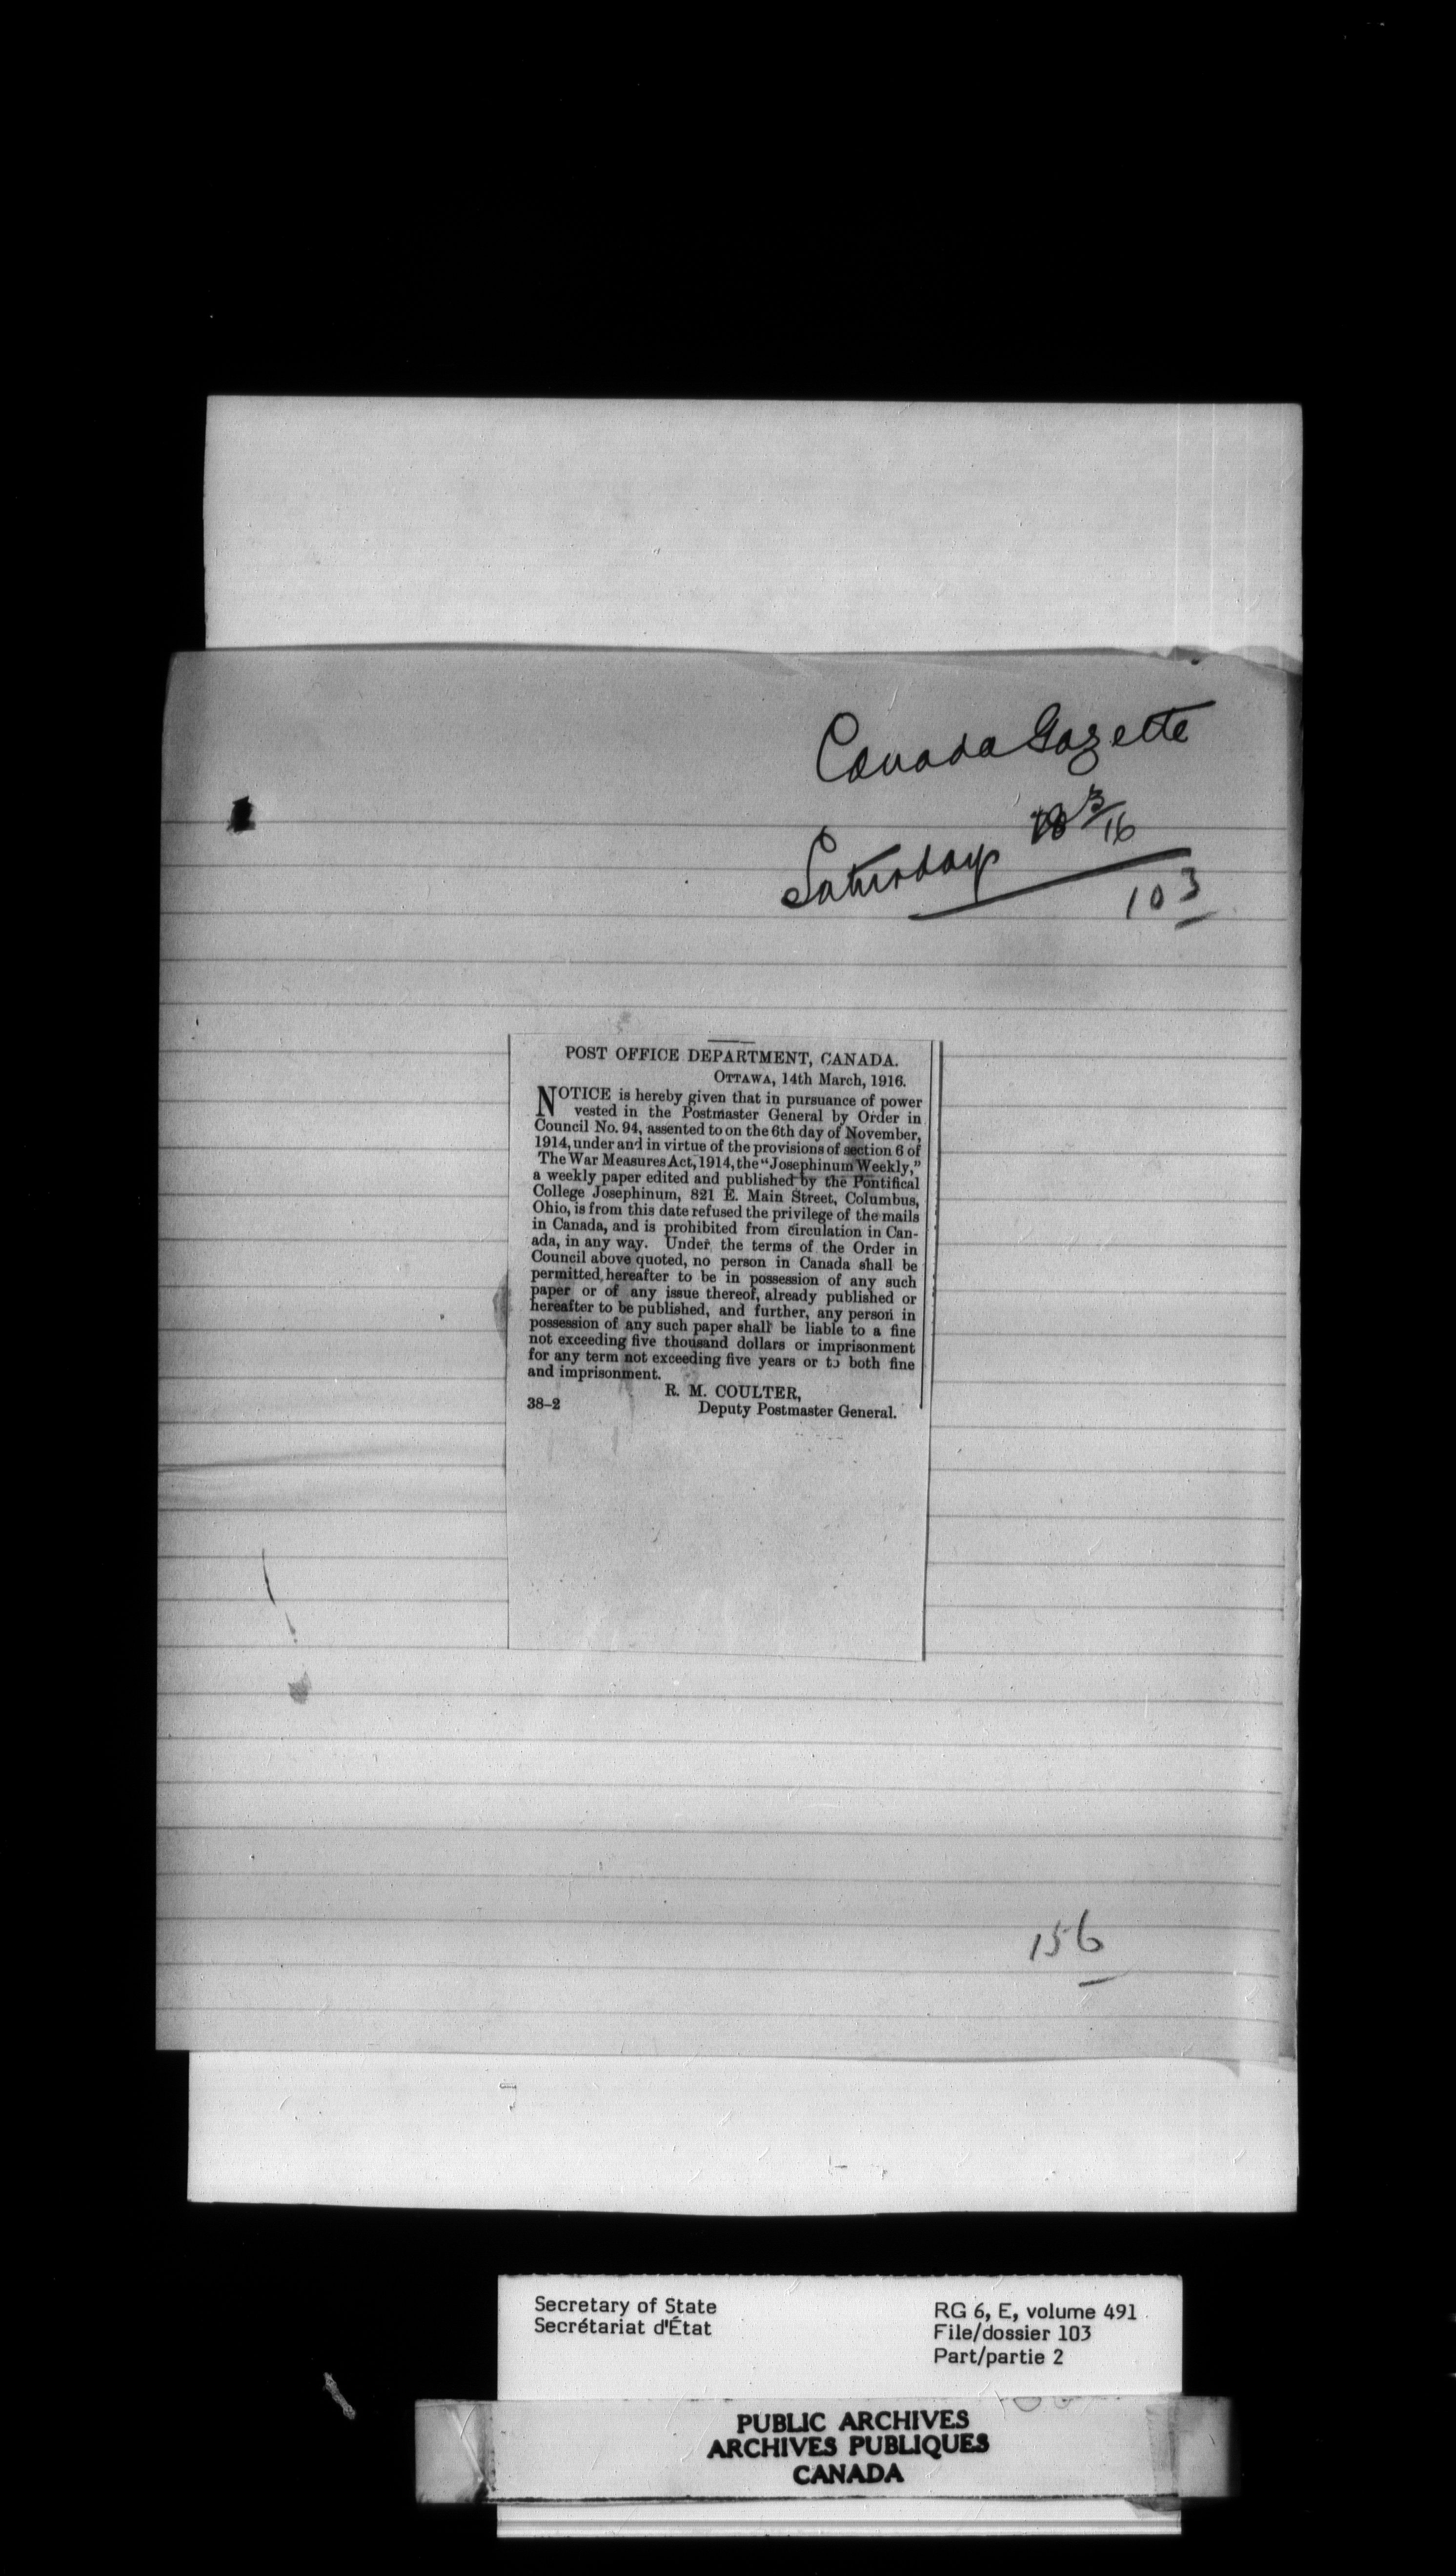 Canada Gazette
Saturday 18 3/16
103
POST OFFICE DEPARTMENT, CANADA.
OTTAWA, 14th March, 1916.
NOTICE is hereby given that in pursuance of power
vested in the Postmaster General by Order in
Council No. 94, assented to on the 6th day of November,
1914, under and in virtue of the provisions of section 6 of
The War Measures Act, 1914, the "Josephinum Weekly,"
a weekly paper edited and published by the Pontifical
College Josephinum, 821 E. Main Street, Columbus,
Ohio, is from this date refused the privilege of the mails
in Canada, and is prohibited from circulation in Can-
ada, in any way. Under the terms of the Order in
Council above quoted, no person in Canada shall be
permitted hereafter to be in possession of any such
paper or of any issue thereof, already published or
hereafter to be published, and further, any person in
possession of any such paper shall be liable to a fine
not exceeding five thousand dollars or imprisonment
for any term not exceeding five years or to both fine
and imprisonment.
R. M. COULTER,
38-2 Deputy Postmaster General.
156
Secretary of State
Secrétariat d'État
RG 6, E, volume 491
File/dossier 103
Part/partie 2
PUBLIC ARCHIVES
ARCHIVES PUBLIQUES
CANADA